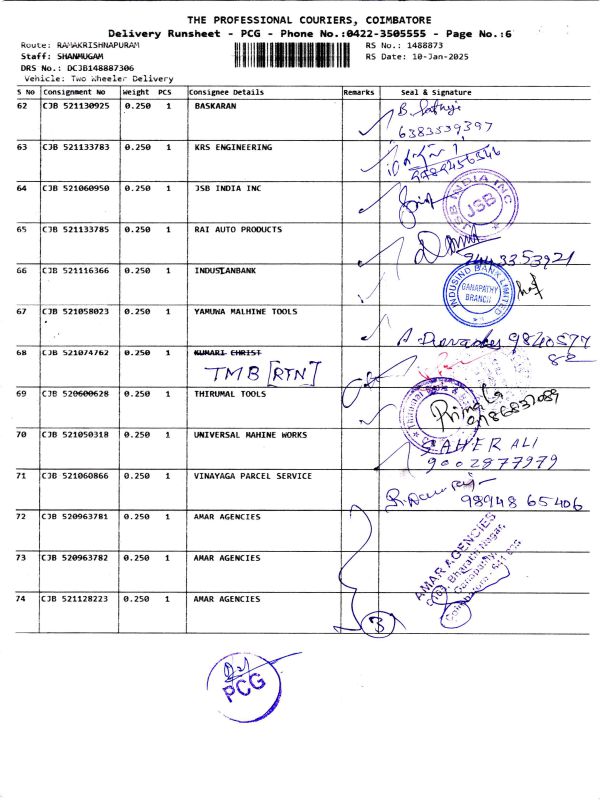 THE PROFESSIONAL COURIERS, COIMBATORE
Delivery Runsheet - PCG - Phone No.:0422-3505555 - Page No.:6
Route: RAMAKRISHNAPURAM
RS No.: 1488873
Staff: SHANMUGAM
RS Date: 10-Jan-2025
DRS No.: DCJB148887306
Vehicle: Two Wheeler Delivery
S No Consignment No Weight PCS Consignee Details Remarks Seal & Signature
62 CJB 521130925 0.250 1 BASKARAN
6383539397
63 CJB 521133783 0.250 1 KRS ENGINEERING
64 CJB 521060950 0.250 1 JSB INDIA INC
JSB INDIA INC
JSB
65 CJB 521133785 0.250 1 RAI AUTO PRODUCTS
9443353921
66 CJB 521116366 0.250 1 INDUSIANBANK
INDUSIND BANK LIMITED
GANAPATHY
BRANCH
67 CJB 521058023 0.250 1 YAMUWA MALHINE TOOLS
9840577
82
68 CJB 521074762 0.250 1 KUMARI CHRIST
TMB [RTN]
69 CJB 520600628 0.250 1 THIRUMAL TOOLS
70 CJB 521050318 0.250 1 UNIVERSAL MAHINE WORKS
SAHER ALI
9002977979
71 CJB 521060866 0.250 1 VINAYAGA PARCEL SERVICE
98948 65406
72 CJB 520963781 0.250 1 AMAR AGENCIES
73 CJB 520963782 0.250 1 AMAR AGENCIES
74 CJB 521128223 0.250 1 AMAR AGENCIES
AMAR AGENCIES
Bharathi Nagar,
Ganapathy
Coimbatore
3
PCG